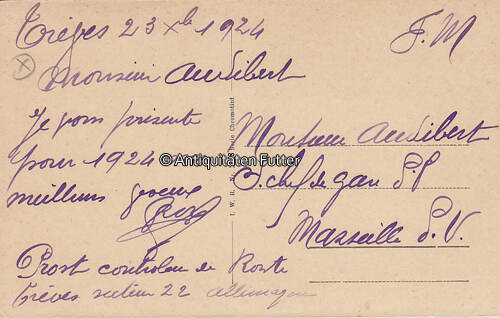 Trèves 23 Xbre 1924
F.M
Monsieur Audibert
Je vous présente
pour 1924
meilleurs voeux
Prost
Prost controleur de Route
Trèves secteur 22 Allemagne
Monsieur Audibert
S. chef de gare P.V
Marseille P.V.
© Antiquitäten Futter